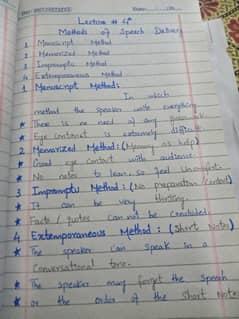 Lecture # 4
Methods of Speech Delivery
1 Manuscript Method
2 Memorized Method
3 Impromptu Method
4 Extemporaneous Method
1 Manuscript Method:
In which
method the speaker write everything
* There is no need of any
* Eye contact is extremely difficult
2 Memorized Method: (Memory as help)
* Good eye contact with audience
* No notes to lean, so feel
3 Impromptu Method: (No preparation /
* It can be very thrilling.
* Facts / quotes can not be
4 Extemporaneous Method: (Short Notes)
* The speaker can speak in a
Conversational tone.
* The speaker may forget the speech
* or the order of the short notes